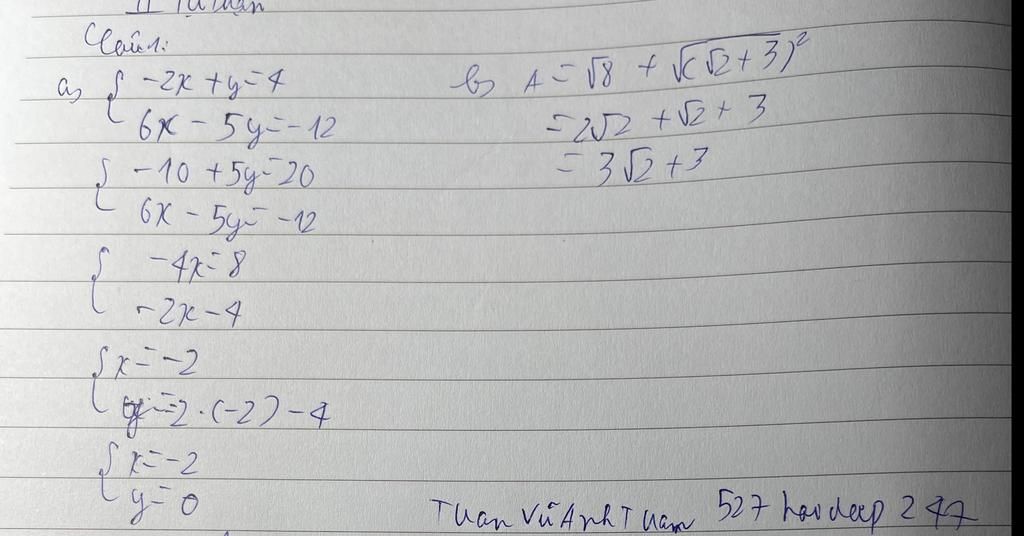 II Tự luận
Câu 1:
a, { -2x + y = 4
6x - 5y = -12
{ -10 + 5y = 20
6x - 5y = -12
{ -4x = 8
-2x - 4
{ x = -2
y = 2 · (-2) - 4
{ x = -2
y = 0
b, A = √8 + √(√2 + 3)²
= 2√2 + √2 + 3
= 3√2 + 3
Tuan Vũ Anh Tuam 527 247